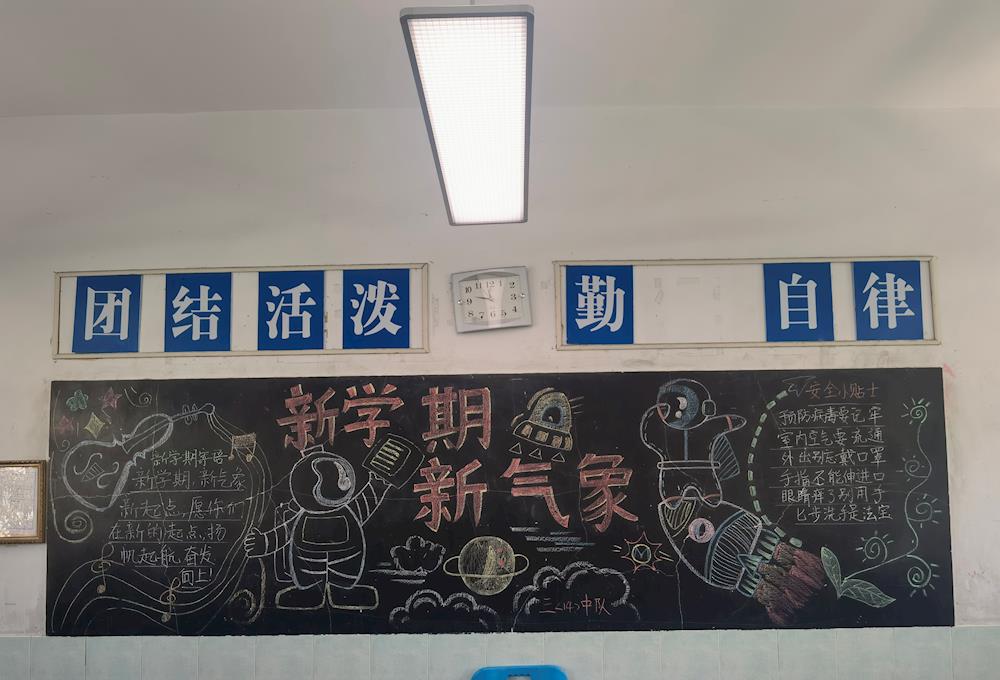 团结活泼
10 11 12 1 2 3 4 5 6 7 8 9
勤 自律
新学期
新气象
新学期寄语
新学期,新气象
新起点,愿你们
在新的起点,扬
帆起航,奋发
向上!
二<14>中队
安全小贴士
预防病毒要记牢
室内空气要流通
外出别忘戴口罩
手指不能伸进口
眼睛痒了别用手
七步洗手是法宝